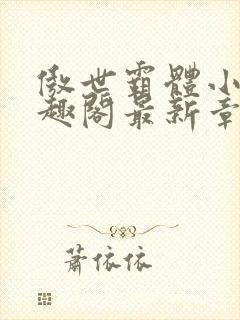 傲世霸體小
趣閣最新章
蕭依依